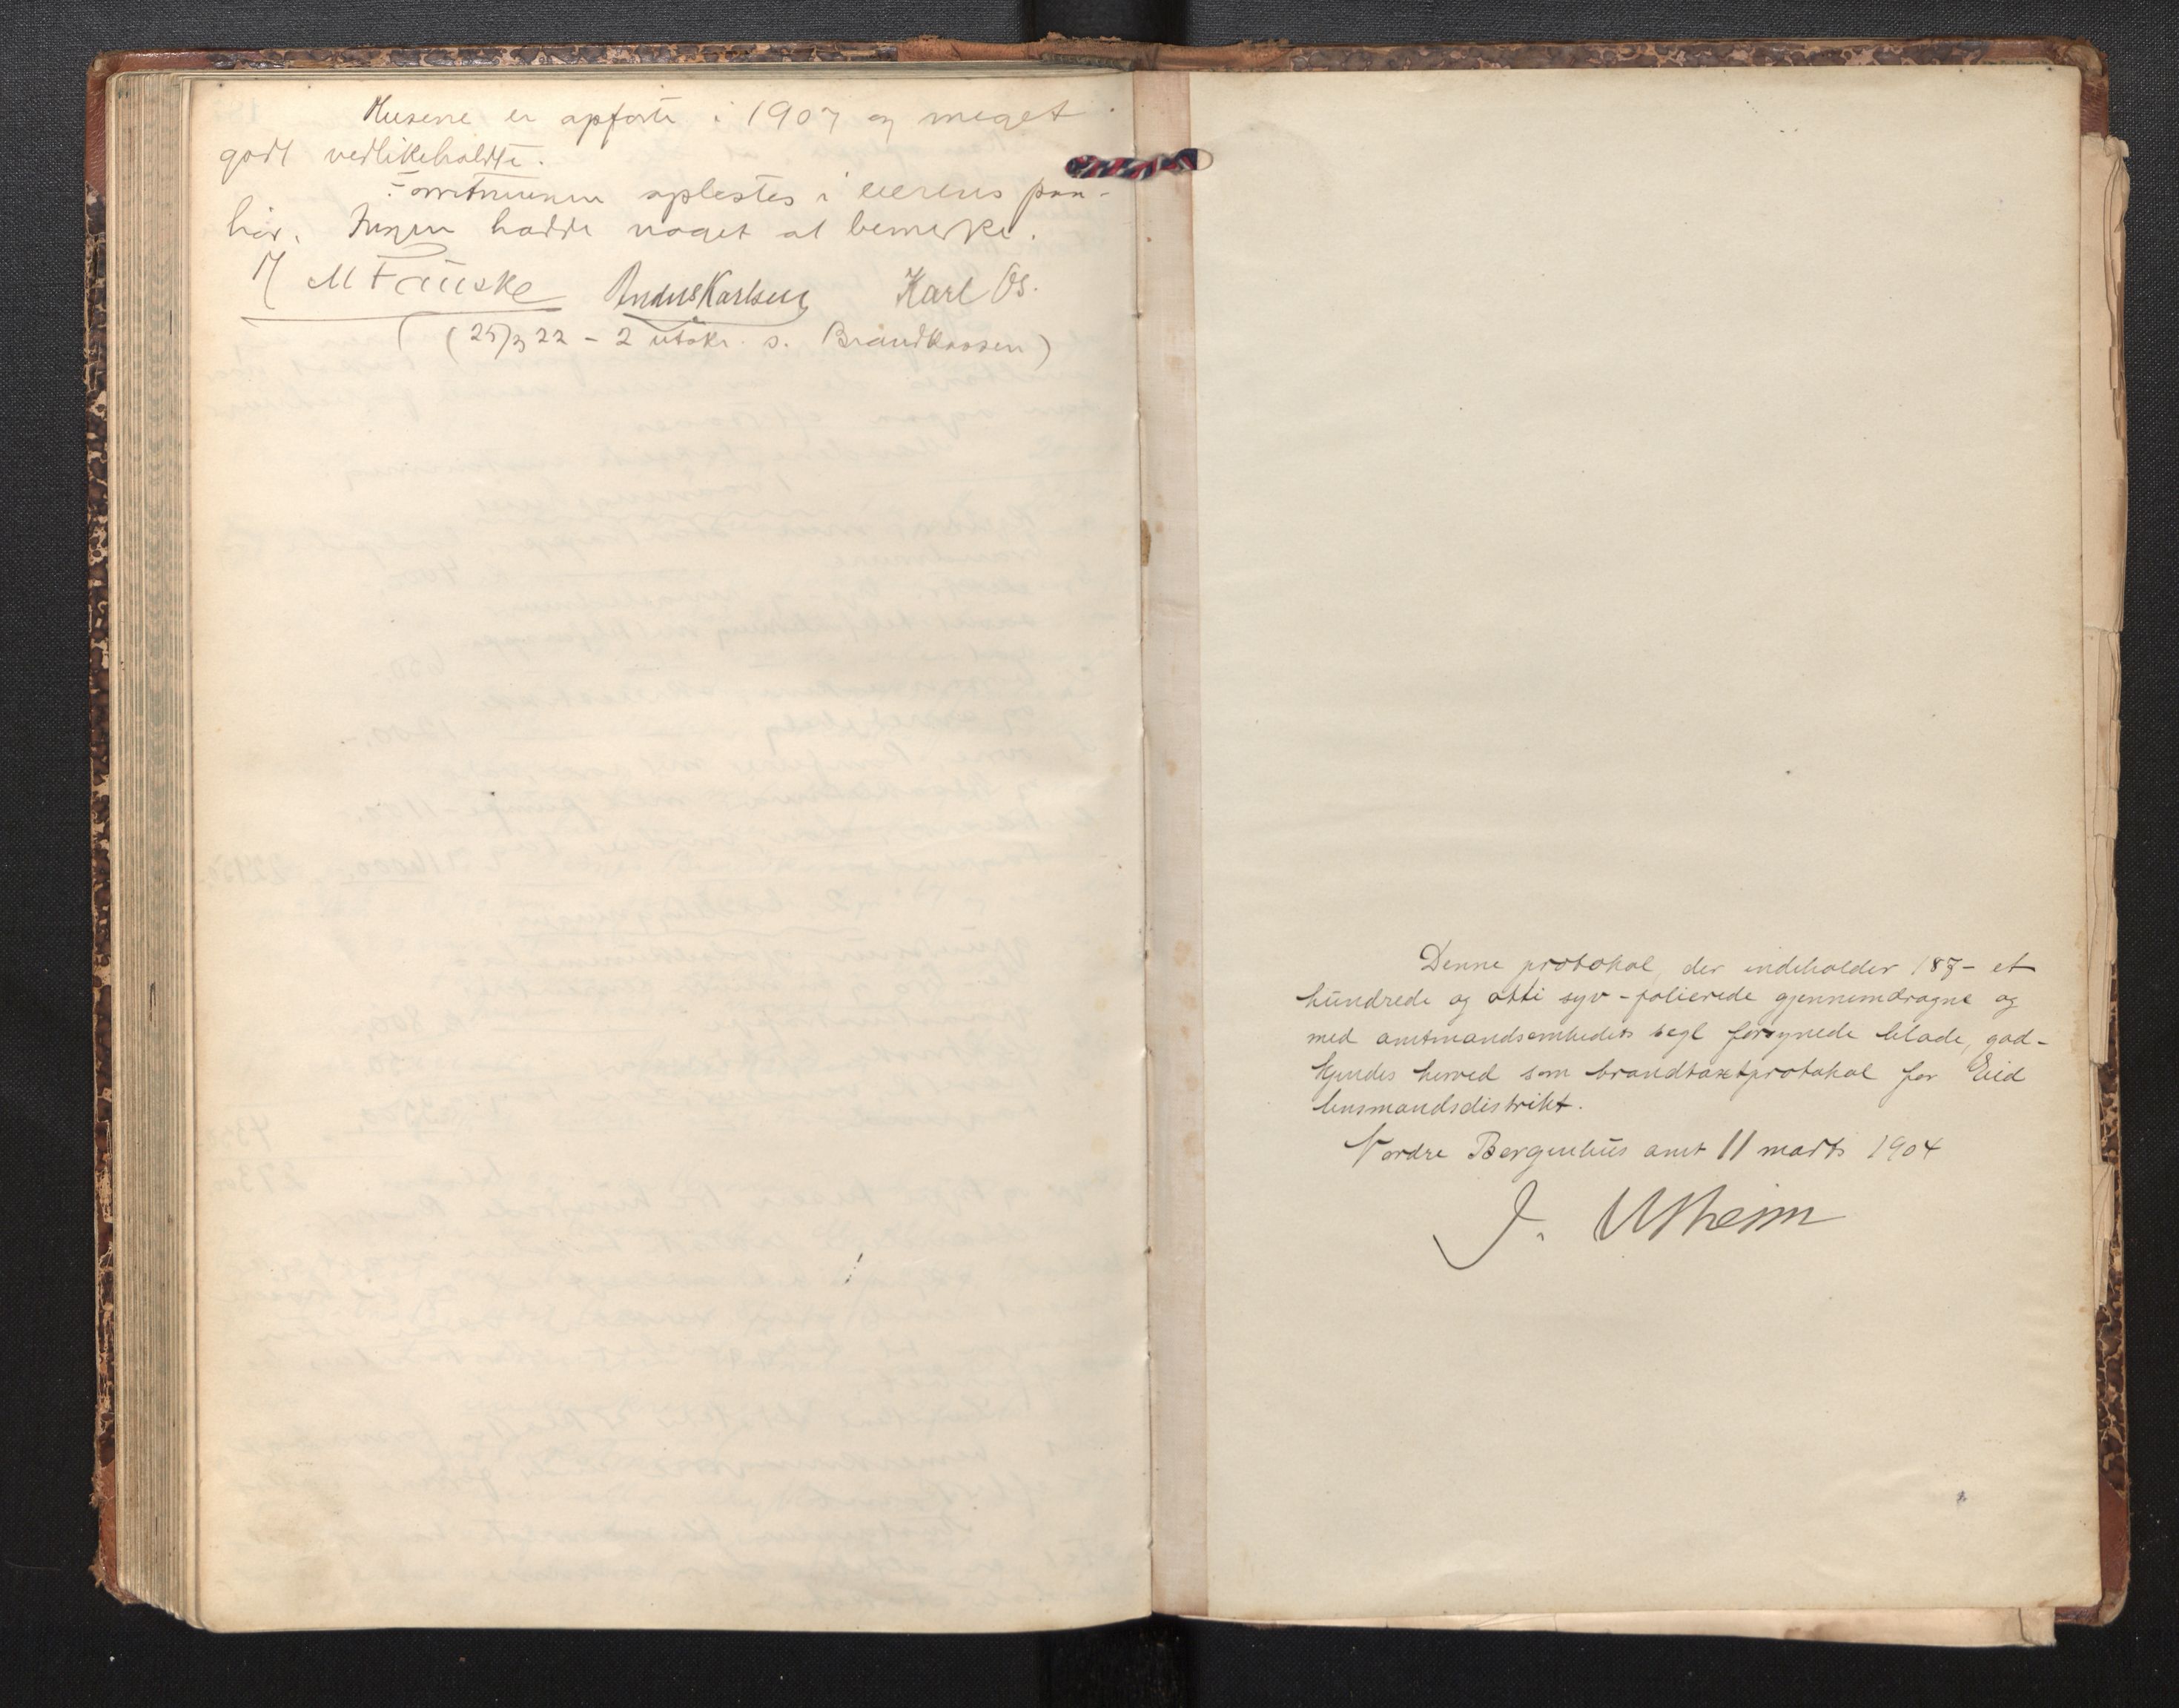 Husene er opførte i 1907 og meget
godt vedlikeholdte.
Forretningen oplestes i eierens paa-
hør. Ingen hadde noget at bemerke.
M Fauske Andreas Karlsen Karl Os.
(25/3 22 - 2 utskr. s. Brandkassen)
Denne protokol, der indeholder 187 - et
hundrede og otti syv - folierede gjennemdragne og
med amtmandsembedets segl forsynede blade, god-
kjendes herved som brandtaxtprotokol for Eid
lensmandsdistrikt.
Nordre Bergenhus amt 11 marts 1904
J. Utheim